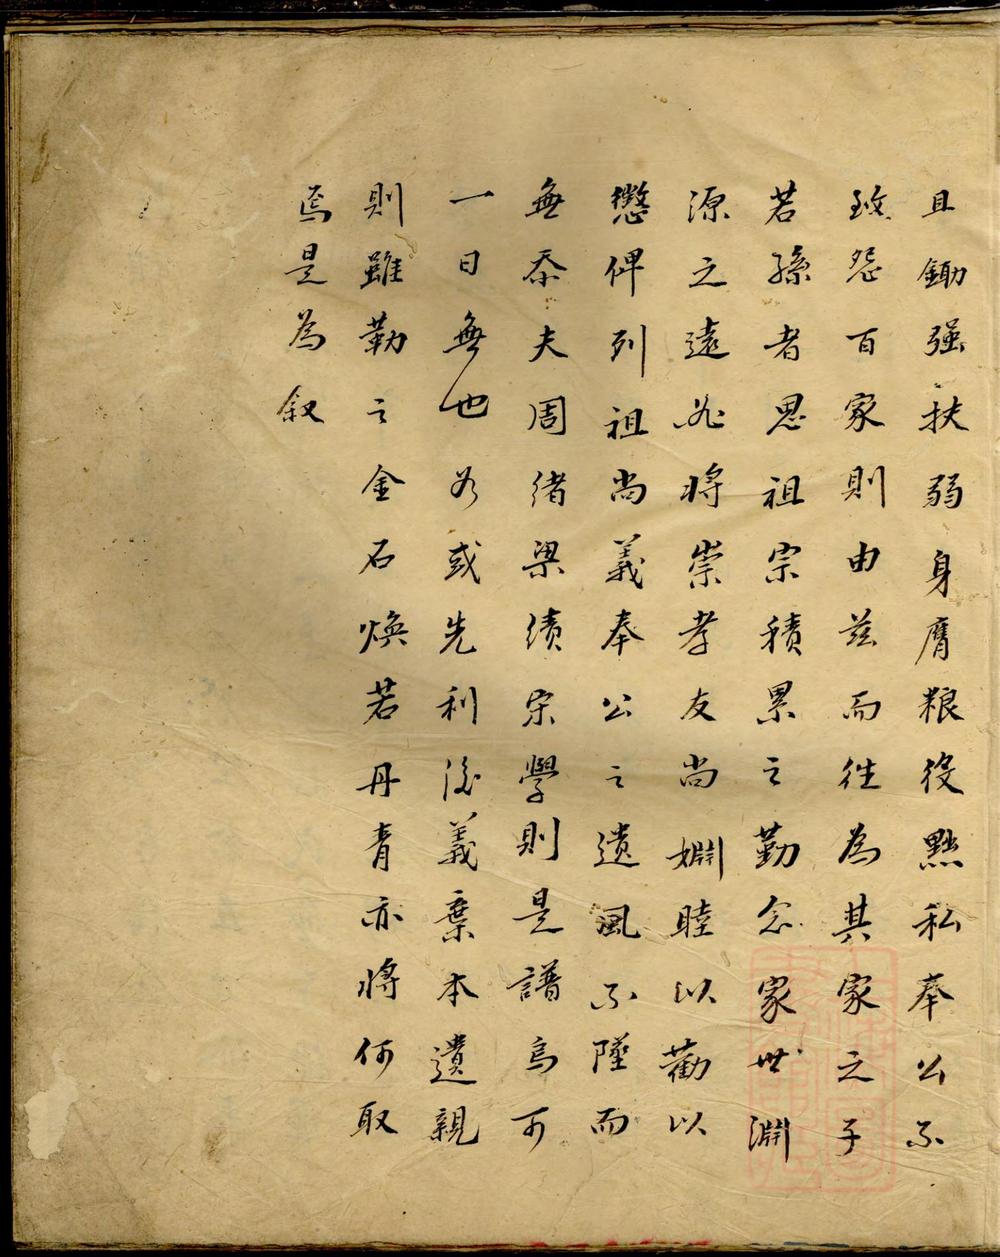 且鋤强扶弱身膺粮役黜私奉公不
致怨百家則由兹而往為其家之子
若孫者思祖宗積累之勤念家世淵
源之遠必將崇孝友尚婣睦以勸以
懲俾列祖尚義奉公之遺風不墜而
無忝夫周緒梁績宋學則是譜烏可
一日無也若或先利後義棄本遺親
則雖勒之金石焕若丹青亦將何取
焉是為叙